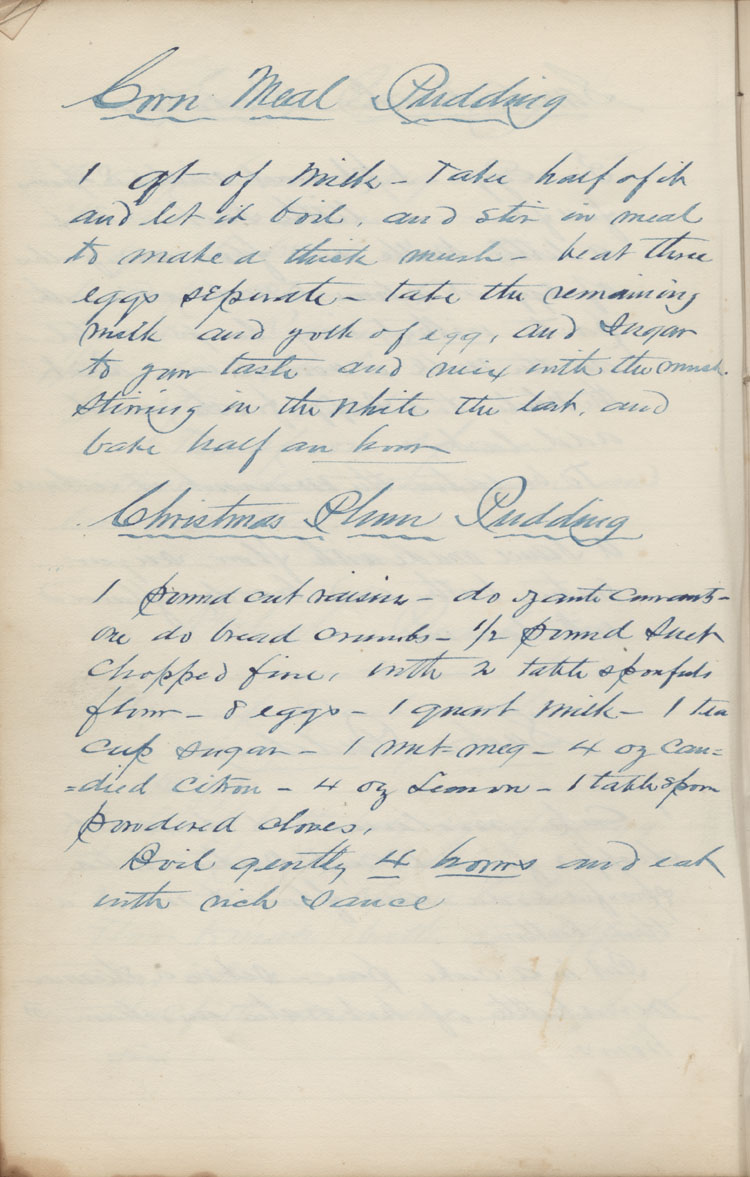 Corn Meal Pudding
1 qt of Milk - Take half of it
and let it boil, and stir in meal
to make a thick mush - beat three
eggs seperate - take the remaining
milk and yolk of egg, and sugar
to your taste and mix with the mush.
Stirring in the white the last, and
bake half an hour
Christmas Plum Pudding
1 pound cut raisins - do zante currants -
do bread crumbs - 1/2 pound Suet
chopped fine, with 2 table sponfuls
flour - 8 eggs - 1 quart milk - 1 tea
cup sugar - 1 nut=meg - 4 oz can=
=died citron - 4 oz Lemon - 1 tablespoon
powdered cloves,
Boil gently 4 hours and eat
with rich sauce